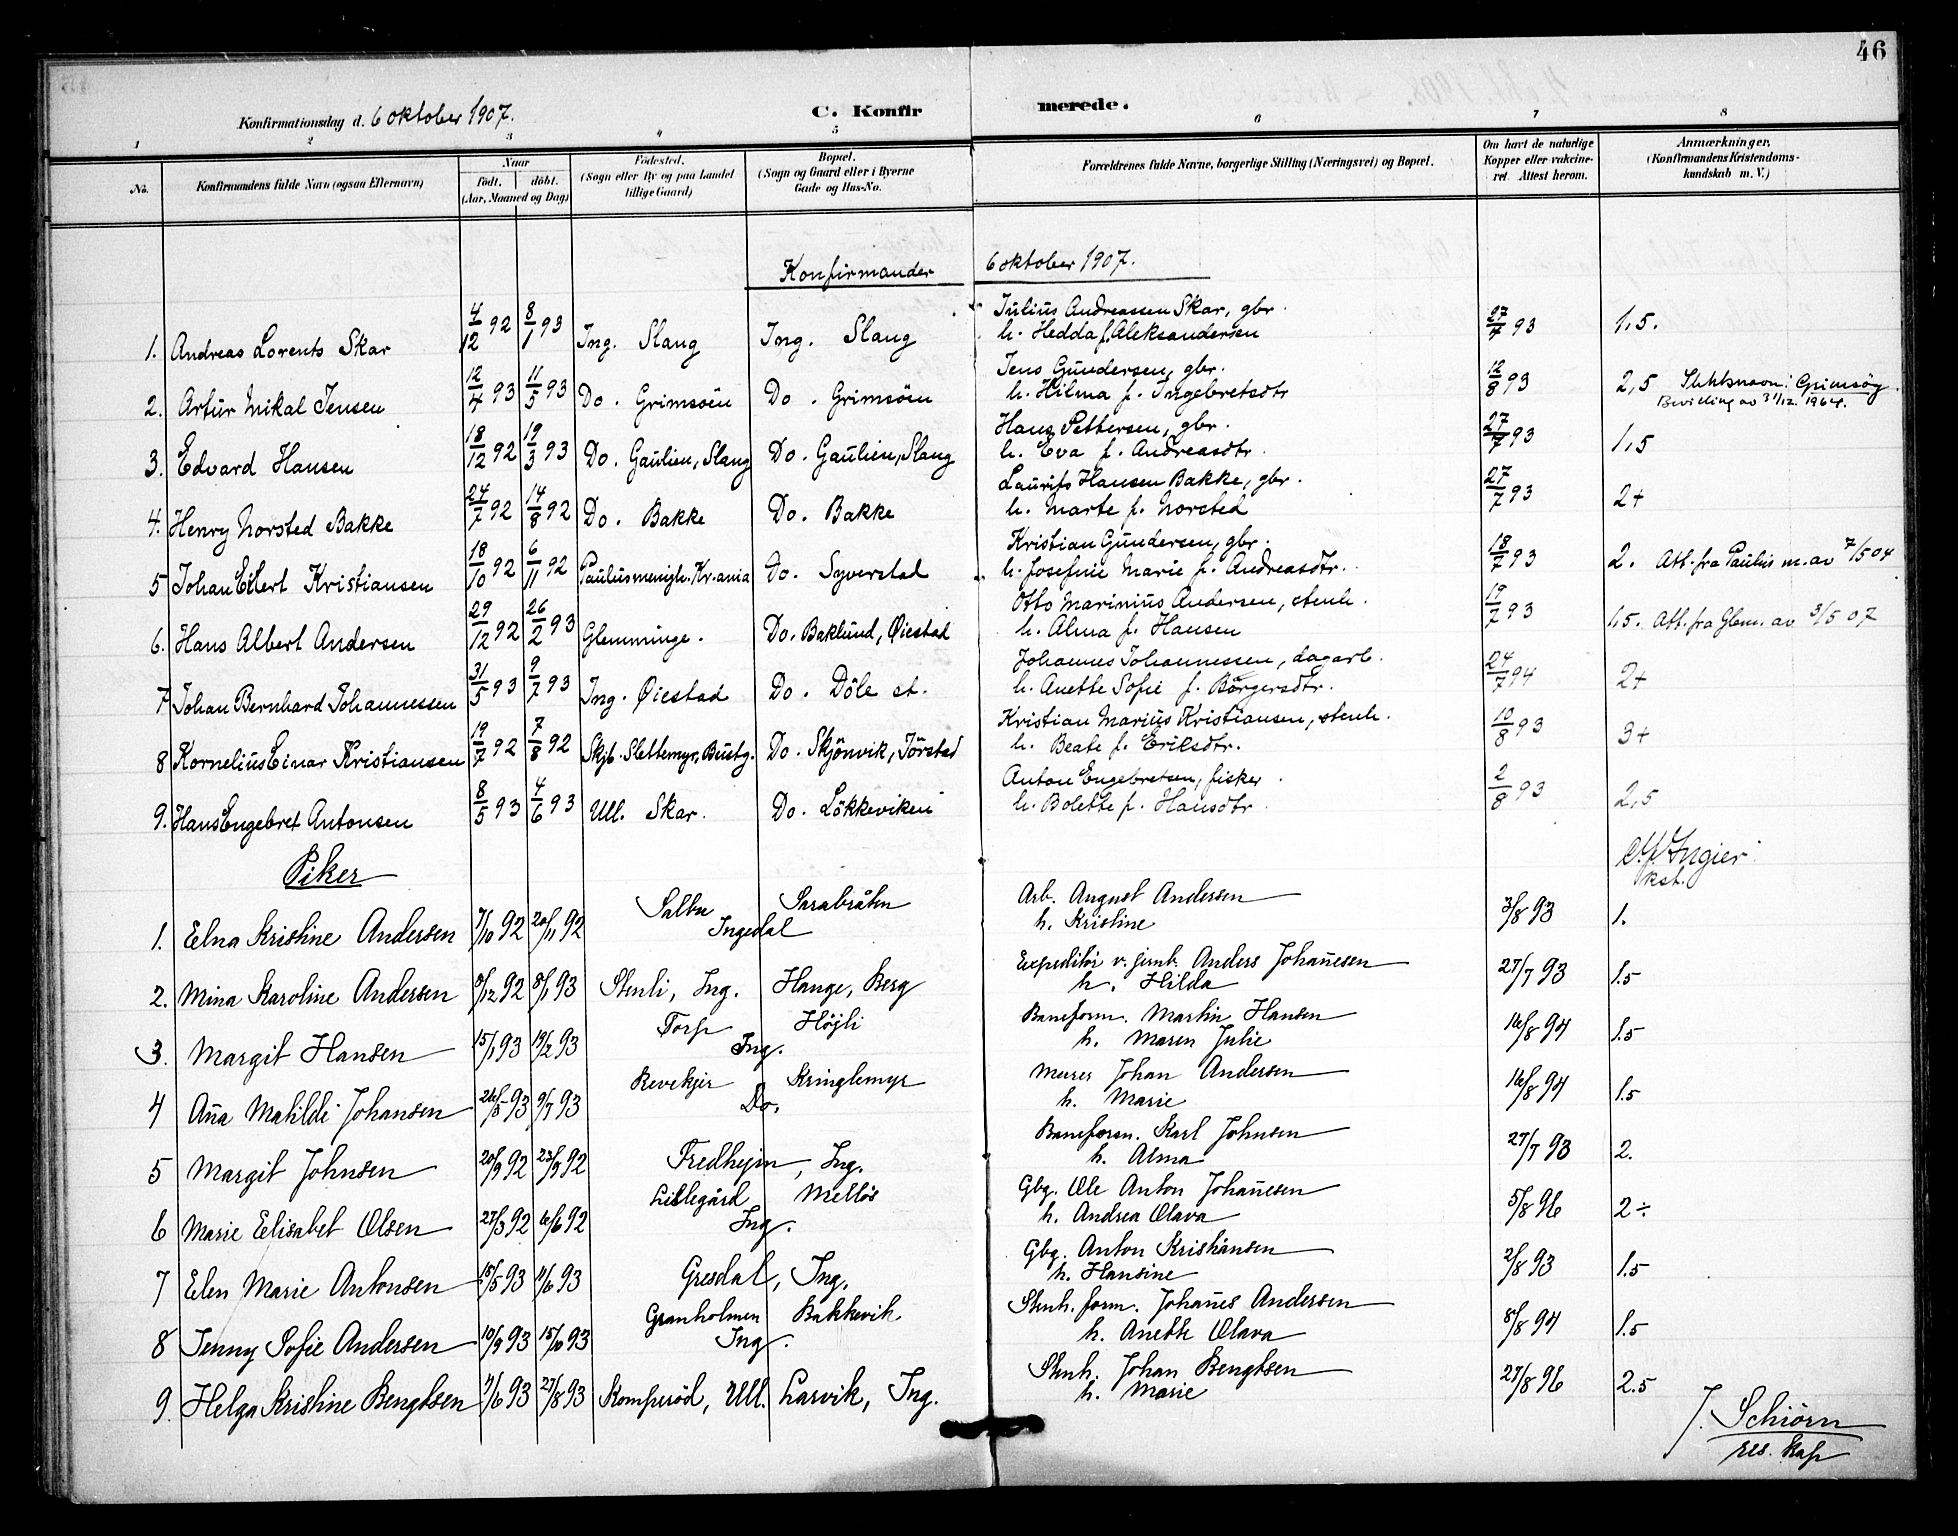 46
Konfirmationsdag d. 6 oktober 1907.
C. Konfirmerede.
1 2 3 4 5 6 7 8
No. Konfirmandens fulde Navn (ogsaa Efternavn) Naar födt. döbt. (Aar, Maaned og Dag) Födested. (Sogn eller By og paa Landet tillige Gaard) Bopæl. (Sogn og Gaard eller i Byerne Gade og Hus-No. Forældrenes fulde Navne, borgerlige Stilling (Næringsvei) og Bopæl. Om havt de naturlige Kopper eller vakcineret. Attest herom. Anmærkninger. (Konfirmandens Kristendomskundskab m. V.)
Konfirmander 6 oktober 1907.
1. Andreas Lorents Skar 4/12 92 8/1 93 Ing. Slang Ing. Slang Julius Andreassen Skar, gbr. h. Hedda f. Aleksandersen 27/7 93 1,5.
2. Artur Mikal Jensen 12/4 93 11/5 93 Do. Grimsöen Do. Grimsöen Jens Gundersen, gbr. h. Hilma f. Ingebretsdtr 12/8 93 2,5 Slektsnavn: Grimsøy. Bevilling av 31/12. 1964.
3. Edvard Hansen 18/12 92 19/3 93 Do. Gaulien, Slang Do. Gaulien, Slang Hans Pettersen, gbr. h. Eva f. Andreasdtr. 27/7 93 1,5
4. Henry Norsted Bakke 24/7 92 14/8 92 Do. Bakke Do. Bakke Laurits Hansen Bakke, gbr. h. Marte f. Norsted 27/7 93 2+
5 Johan Eilert Kristiansen 18/10 92 6/11 92 Paulus menigh. Kr.ania Do. Syverstad Kristian Gundersen, gbr. h. Josefine Marie f. Andreasdtr. 18/7 93 2. Att. fra Paulus m. av 7/5 04
6. Hans Albert Andersen 29/12 92 26/2 93 Glemminge. Do. Baklund, Øiestad Otto Marinius Andersen, stenh. h. Alma f. Hansen 19/7 93 1,5. Att. fra Glem. av 3/5 07
7 Johan Bernhard Johannessen 31/5 93 9/7 93 Ing. Øiestad Do. Döle st. Johannes Johannessen, dagarb. h. Anette Sofie f. Börgersdtr. 24/7 94 2+
8 Kornelius Einar Kristiansen 19/7 92 7/8 92 Skjb. Slettemyr, Bustg. Do. Skjönvik, Törstad Kristian Marius Kristiansen, stenh. h. Beate f. Eriksdtr. 10/8 93 3+
9. Hans Engebret Antonsen 8/5 93 4/6 93 Ull. Skar. Do. Lökkeviken Anton Engebretsen, fisker h. Bolette f. Hansdtr. 2/8 93 2,5
Ingier
kst.
Piker
1. Elna Kristine Andersen 7/10 92 20/11 92 Saltbu Sarabråten Ingedal Arb. August Andersen h. Kristine 3/8 93 1.
2. Mina Karoline Andersen 8/12 92 8/1 93 Stenli, Ing. Hange, Berg Expeditör v. jernb. Anders Johan̄esen h. Hilda 27/7 93 1.5
3. Margit Hansen 15/1 93 19/2 93 Torp Höjli Ing. Baneform. Martin Hansen h. Maren Julie 16/8 94 1.5
4 An̄a Matilde Johansen 26/5 93 9/7 93 Revekjer Kringlemyr Do. Murer Johan Andersen h. Marie 16/8 94 1.5
5 Margit Johnsen 20/8 92 23/9 92 Fredhejm, Ing. Baneform. Karl Johnsen h. Alma 27/7 93 2.
6 Marie Elisabet Olsen 27/3 92 6/6 92 Lillegård Mellös Ing. Gbg. Ole Anton Johan̄esen h. Andrea Olava 5/8 96 2 ÷
7 Elen Marie Antonsen 18/5 93 11/6 93 Gresdal, Ing. Gbg. Anton Kristiansen h. Hansine 2/8 93 1.5
8 Jenny Sofie Andersen 10/9 93 15/10 93 Granholmen Bakkevik Ing. Stenh. form. Johan̄es Andersen h. Anette Olava 8/8 94 1.5
9. Helga Kristine Bengtsen 11/6 93 27/8 93 Komperöd, Ull. Larvik, Ing. Stenh. Johan Bengtsen h. Marie 27/8 96 2.5
J. Schiörn
res. kap